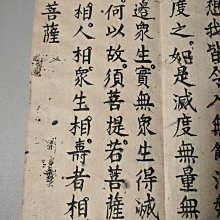 想我皆
度之如是滅度無量無
邊衆生實無衆生得滅
何以故須菩提若菩薩
相人相衆生相壽者相
菩薩